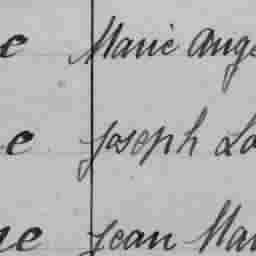 e Marie Ange
e Joseph Lo
ne Jean Mar